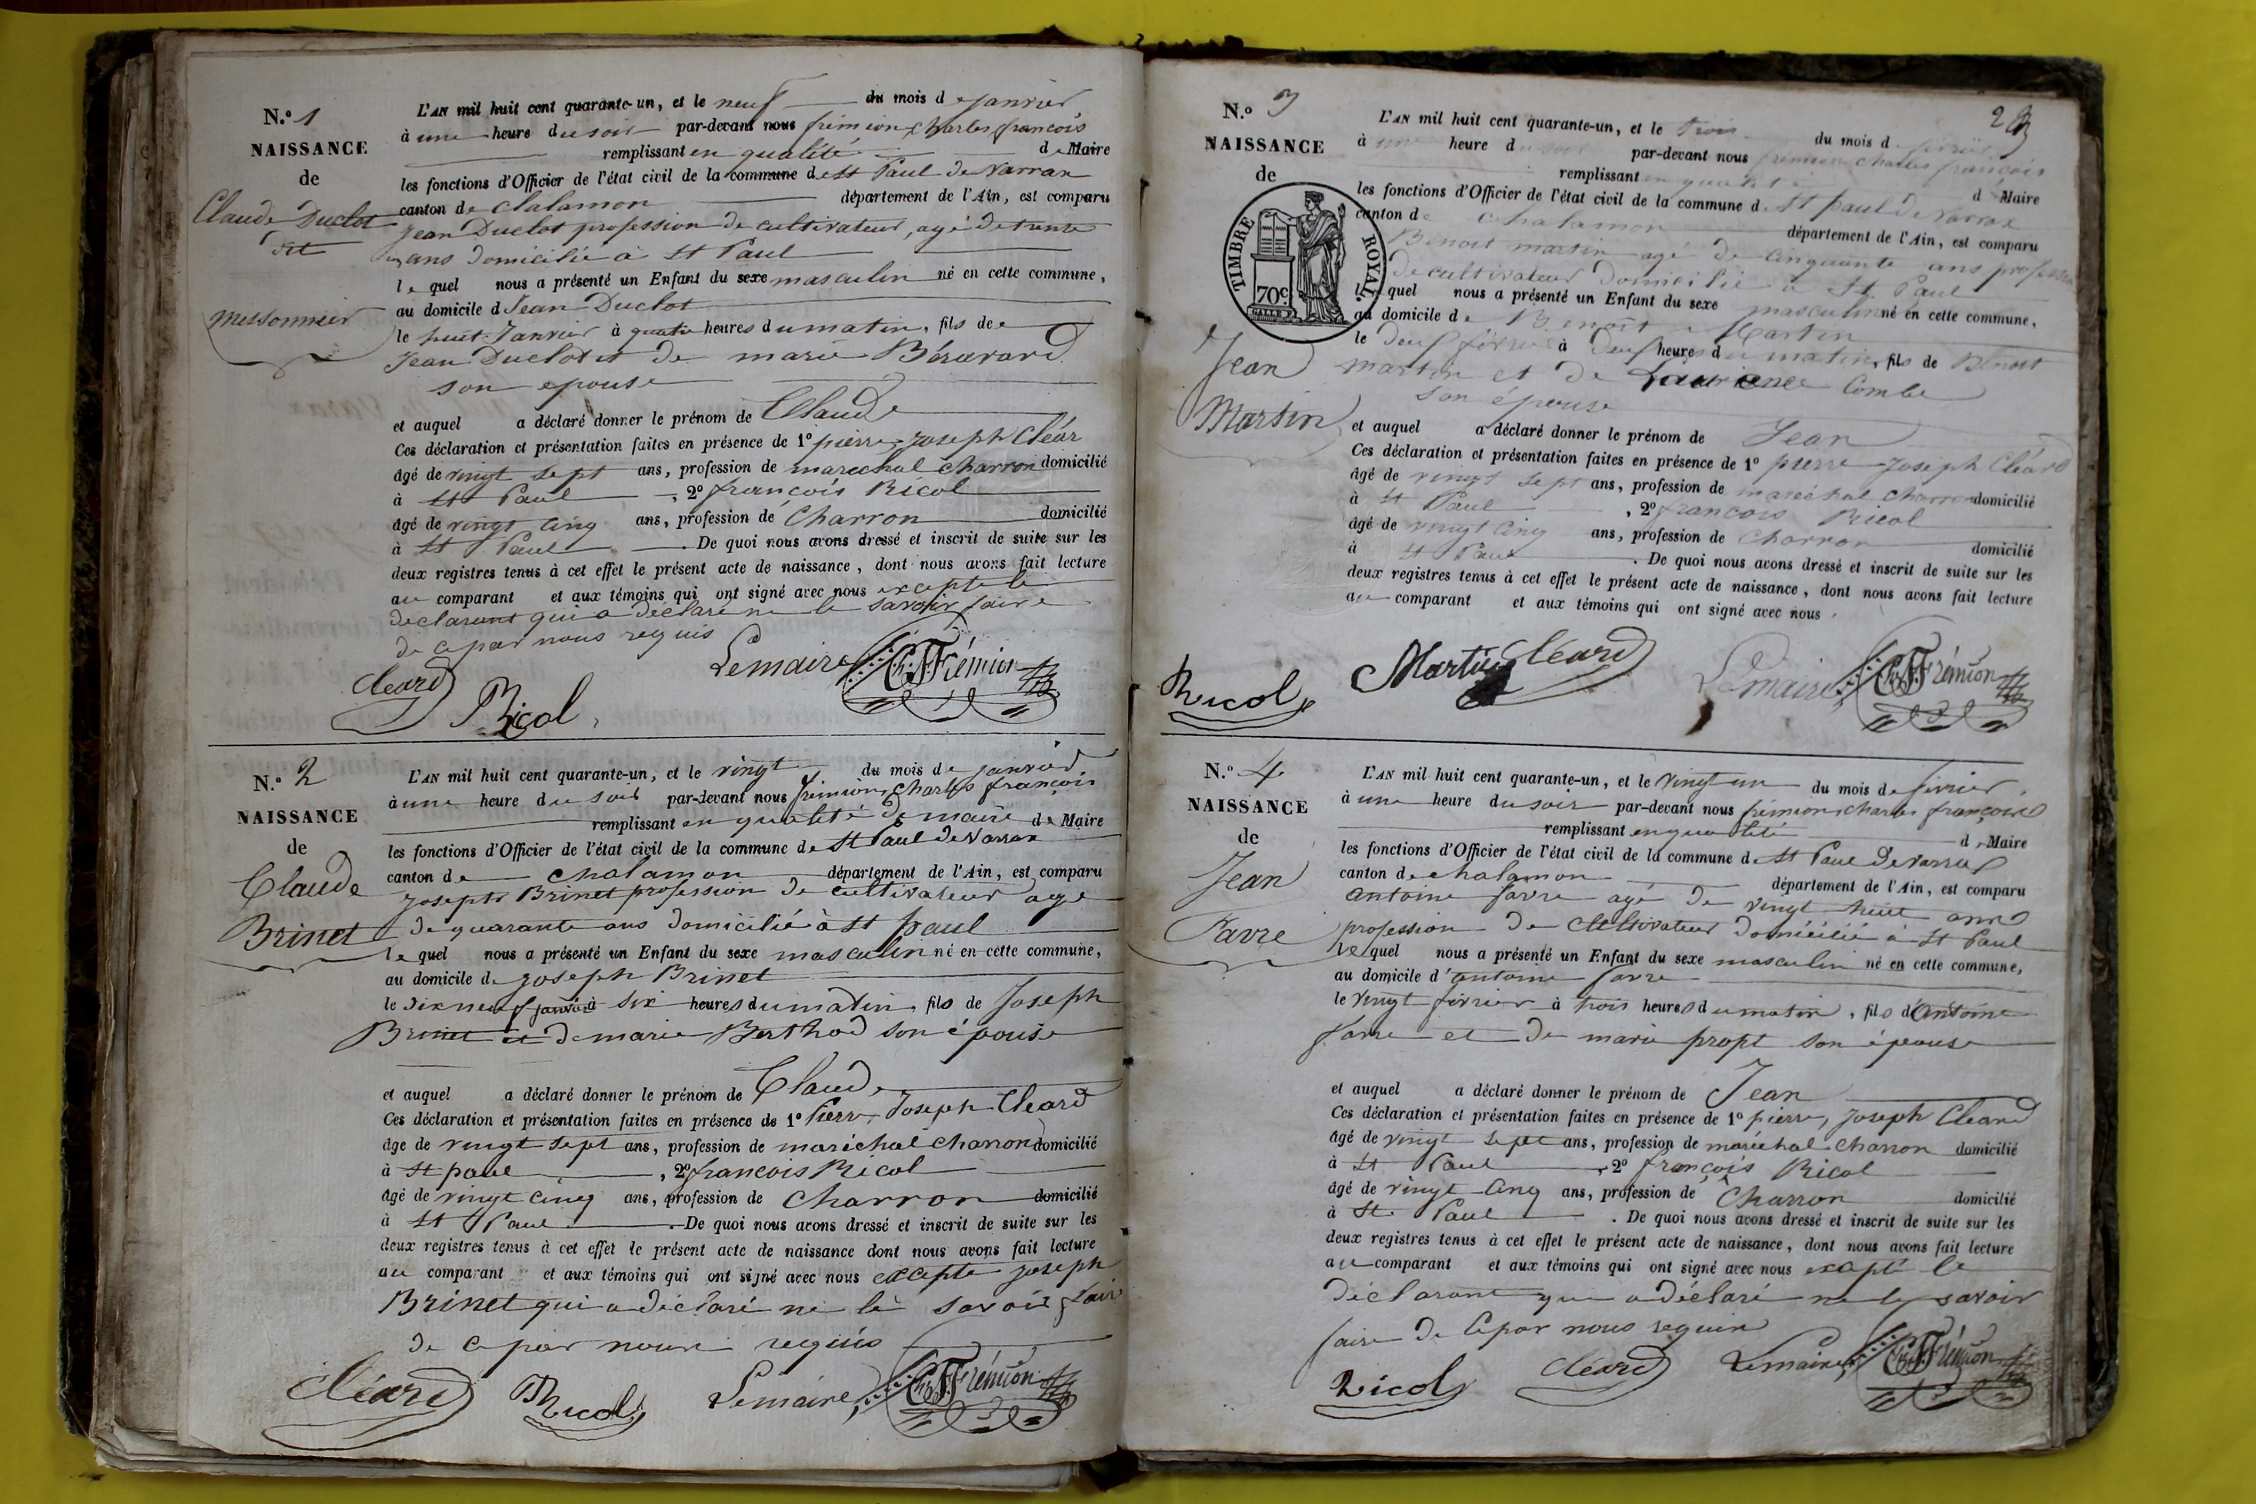 N.° 1
NAISSANCE
de
Claude Duclot
dit
Messonnier
L'AN mil huit cent quarante-un, et le neuf du mois de janvier
à une heure du soir par-devant nous frémion, charles françois
remplissant en qualité de Maire
les fonctions d'Officier de l'état civil de la commune de St Paul de Varrax
canton de chalamon département de l'Ain, est comparu
Jean Duclot profession de cultivateur, agé de trente
ans domicilié à St Paul
le quel nous a présenté un Enfant du sexe masculin né en cette commune,
au domicile d Jean Duclot
le huit Janvier à quatre heures du matin, fils de
Jean Duclot et de marie
son epouse
et auquel a déclaré donner le prénom de Claude
Ces déclaration et présentation faites en présence de 1° pierre, Joseph Cléar
âgé de vingt sept ans, profession de marechal charron domicilié
à St Paul, 2° françois Ricol
âgé de vingt cinq ans, profession de Charron domicilié
à St Paul. De quoi nous avons dressé et inscrit de suite sur les
deux registres tenus à cet effet le présent acte de naissance, dont nous avons fait lecture
au comparant et aux témoins qui ont signé avec nous excepte le
declarant qui a déclaré ne le savoir faire
de ce par nous requis
Cleard Ricol Lemaire Ch. F. Frémion
N.° 2
NAISSANCE
de
Claude
Brinet
L'AN mil huit cent quarante-un, et le vingt du mois de janvier
à une heure du soir par-devant nous frémion, charles françois
remplissant en qualité de maire de Maire
les fonctions d'Officier de l'état civil de la commune de St Paul de Varrax
canton de chalamon département de l'Ain, est comparu
Joseph Brinet profession de cultivateur agé
de quarante ans domicilié à St paul
le quel nous a présenté un Enfant du sexe masculin né en cette commune,
au domicile de Joseph Brinet
le dix neuf janvier à six heures du matin, fils de Joseph
Brinet et de marie Berthod son épouse
et auquel a déclaré donner le prénom de Claude
Ces déclaration et présentation faites en présence de 1° Pierre, Joseph Cleard
âge de vingt sept ans, profession de maréchal charron domicilié
à St paul, 2° francois Ricol
âgé de vingt cinq ans, profession de charron domicilié
à St Paul. De quoi nous avons dressé et inscrit de suite sur les
deux registres tenus à cet effet le présent acte de naissance dont nous avons fait lecture
au comparant et aux témoins qui ont signé avec nous excepte Joseph
Brinet qui a déclaré ne le savoir faire
de ce par nous requis
Cléard Ricol Lemaire, Ch. F. Frémion
2
N.° 3
NAISSANCE
de
TIMBRE ROYAL
70c.
Jean
Martin
L'AN mil huit cent quarante-un, et le trois du mois de février
à une heure du soir par-devant nous frémion charles françois
remplissant en qualité d Maire
les fonctions d'Officier de l'état civil de la commune de St paul de Varrax
canton de chalamon département de l'Ain, est comparu
Benoit martin agé de cinquante ans profession
de cultivateur domicilié à St Paul
le quel nous a présenté un Enfant du sexe masculin né en cette commune,
au domicile de Benoit Martin
le deux février à deux heures du matin, fils de Benoit
martin et de Laurence Combe
son épouse
et auquel a déclaré donner le prénom de Jean
Ces déclaration et présentation faites en présence de 1° pierre Joseph Cléard
âgé de vingt sept ans, profession de maréchal charron domicilié
à St Paul, 2° françois Ricol
âgé de vingt cinq ans, profession de charron domicilié
à St Paul. De quoi nous avons dressé et inscrit de suite sur les
deux registres tenus à cet effet le présent acte de naissance, dont nous avons fait lecture
au comparant et aux témoins qui ont signé avec nous
Ricol Martin Cleard Lemaire Ch. F. Frémion
N.° 4
NAISSANCE
de
Jean
Favre
L'AN mil huit cent quarante-un, et le vingt un du mois de février
à une heure du soir par-devant nous frémion, charles françois
remplissant en qualité d Maire
les fonctions d'Officier de l'état civil de la commune de St Paul de Varrax
canton de chalamon département de l'Ain, est comparu
antoine favre agé de vingt huit ans
profession de cultivateur domicilié à St Paul
le quel nous a présenté un Enfant du sexe masculin né en cette commune,
au domicile d'antoine favre
le vingt février à trois heures du matin, fils d'antoine
favre et de marie propt son épouse
et auquel a déclaré donner le prénom de Jean
Ces déclaration et présentation faites en présence de 1° pierre, Joseph Cleard
âgé de vingt sept ans, profession de maréchal charron domicilié
à St Paul, 2° françois Ricol
âgé de vingt cinq ans, profession de Charron domicilié
à St Paul. De quoi nous avons dressé et inscrit de suite sur les
deux registres tenus à cet effet le présent acte de naissance, dont nous avons fait lecture
au comparant et aux témoins qui ont signé avec nous excepté le
déclarant qui a déclaré ne le savoir
faire de ce par nous requis
Ricol Cléard Lemaire, Ch. F. Frémion